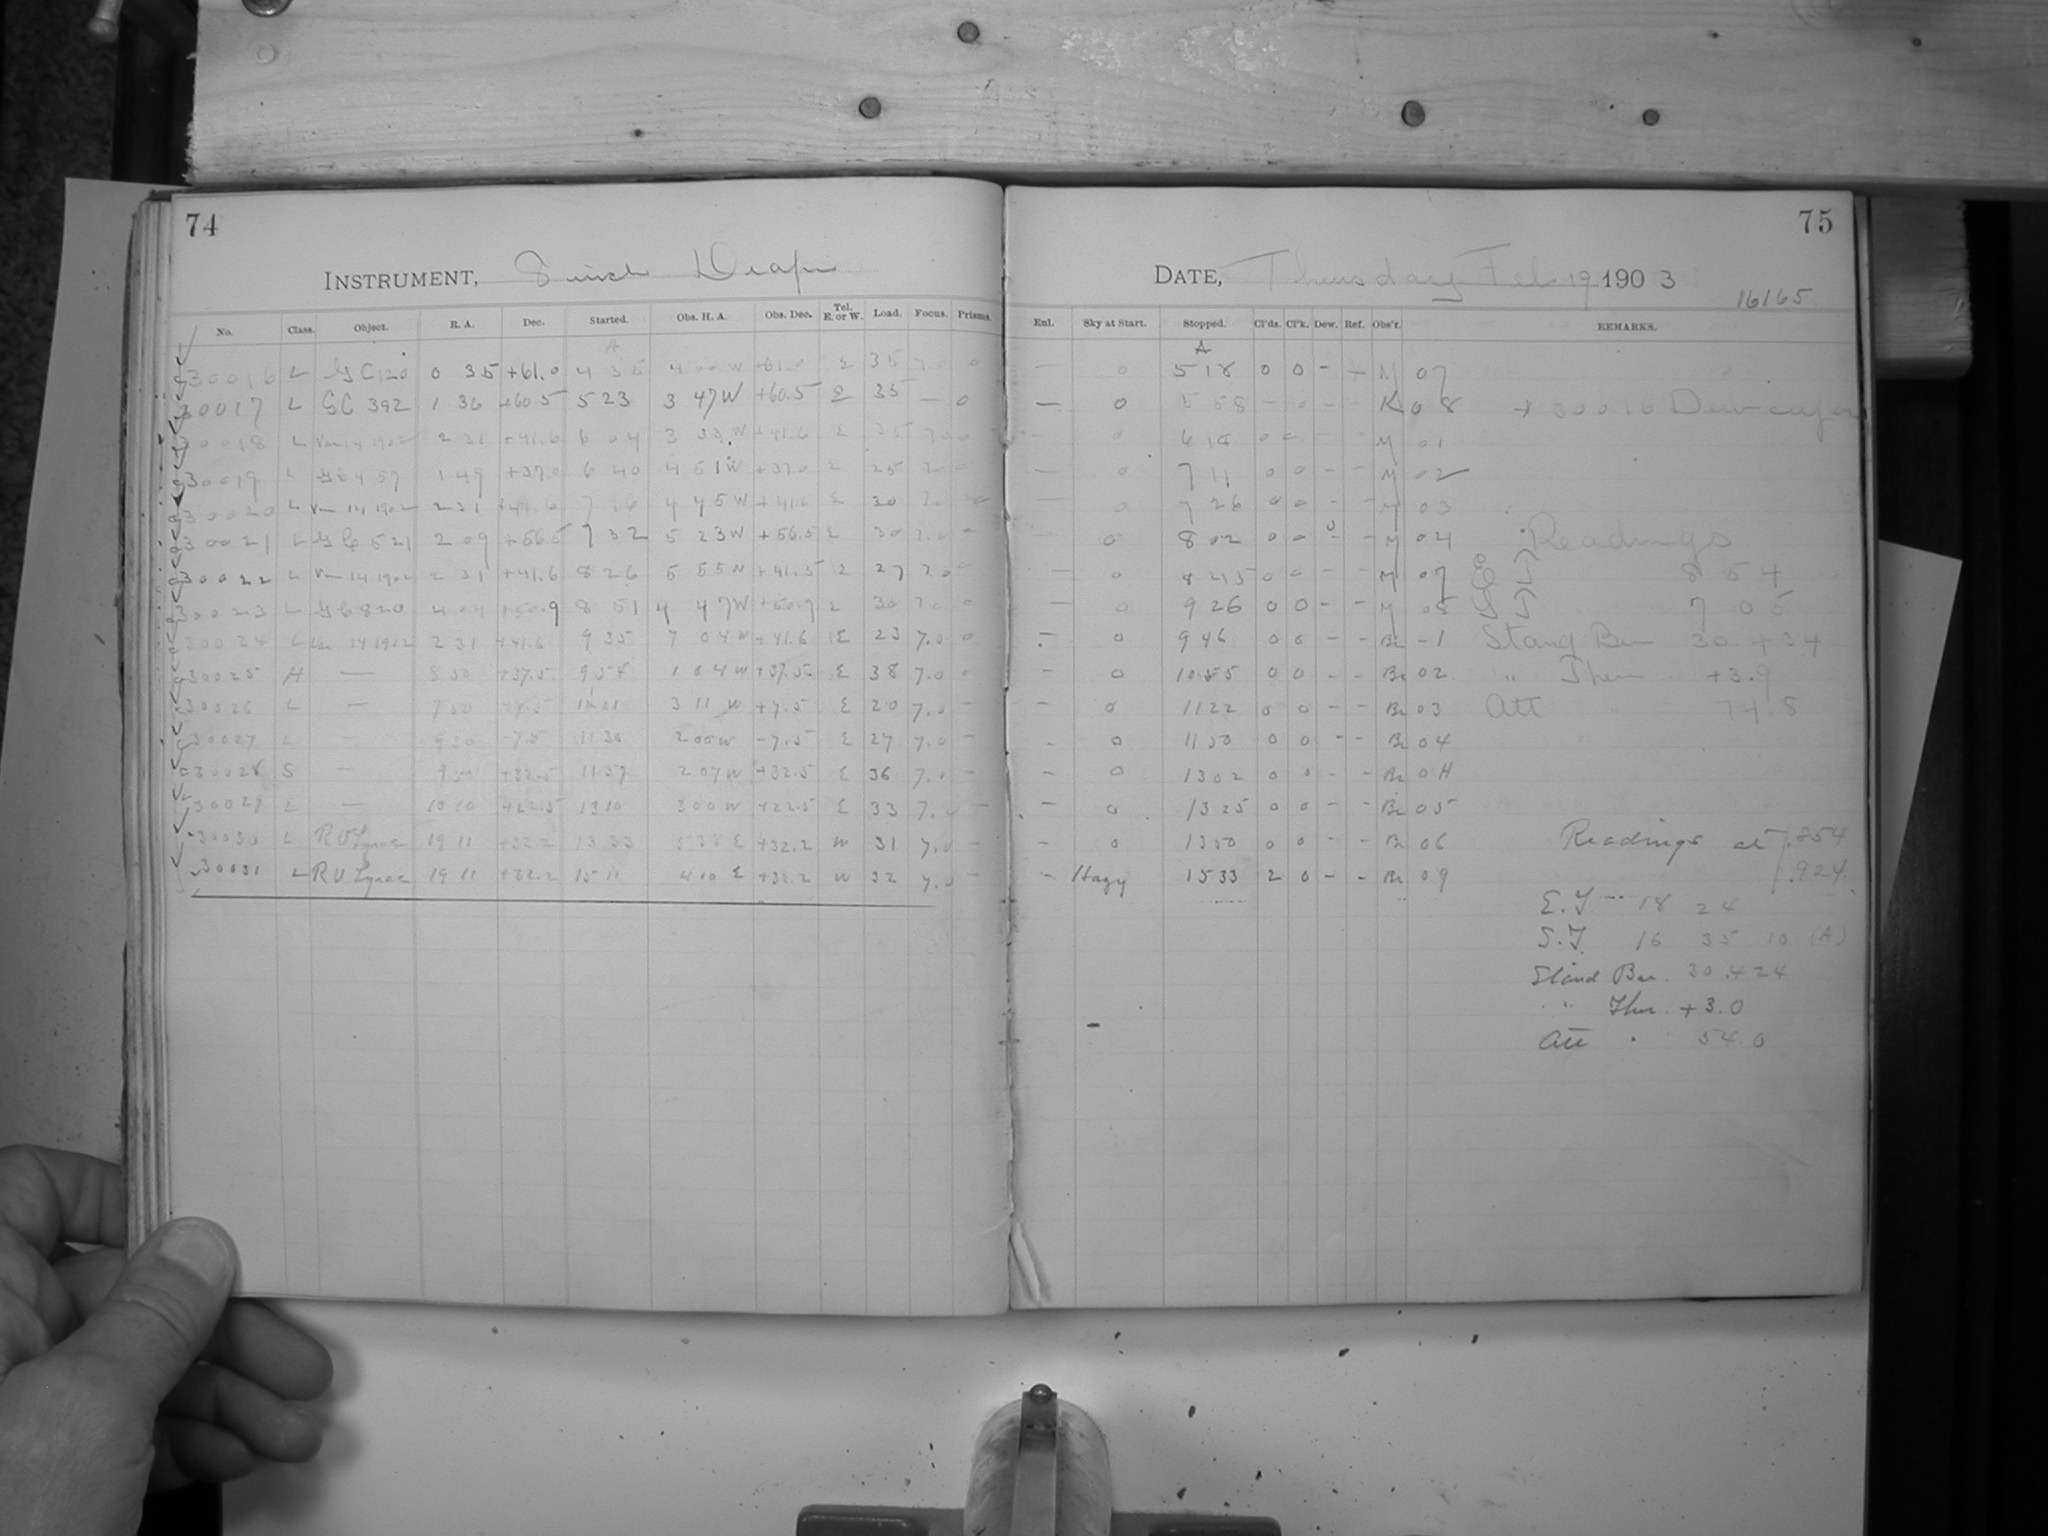 74
INSTRUMENT, 8 inch Draper
No. Class. Object. R. A. Dec. Started. Obs. H. A. Obs. Dec. Tel. E. or W. Load. Focus. Prisms.
A
30016 L GC 120 0 35 +61.0 4 35 4 00 W +61.0 E 35 7.0 0
30017 L GC 392 1 36 +60.5 5 23 3 47 W +60.5 E 35 — 0
30018 L Var 14 1902 2 31 +41.6 6 04 3 33 W +41.6 E 35 7.0 0
30019 L GC 457 1 49 +37.0 6 40 4 51 W +37.0 E 25 7.0 0
30020 L Var 14 1902 2 31 +41.6 7 16 4 45 W +41.6 E 30 7.0 0
30021 L GC 521 2 09 +56.5 7 32 5 23 W +56.5 E 30 7.0 0
30022 L Var 14 1902 2 31 +41.6 8 26 5 55 W +41.5 E 27 7.0 0
30023 L GC 820 4 04 +50.9 8 51 4 47 W +50.9 E 30 7.0 0
30024 L Var 14 1902 2 31 +41.6 9 35 7 04 W +41.6 E 23 7.0 0
30025 H — 8 50 +37.5 9 54 1 04 W +37.5 E 38 7.0 0
30026 L — 7 50 +7.5 11 01 3 11 W +7.5 E 20 7.0 —
30027 L — 9 30 -7.5 11 30 2 00 W -7.5 E 27 7.0 —
30028 S — 9 50 +32.5 11 57 2 07 W +32.5 E 36 7.0 —
30029 L — 10 10 +22.5 13 10 3 00 W +22.5 E 33 7.0 —
30030 L RV Lyrae 19 11 +32.2 13 33 5 38 E +32.2 W 31 7.0 —
30031 L RV Lyrae 19 11 +32.2 15 11 4 10 E +32.2 W 32 7.0 —
75
DATE, Thursday Feb 19 1903
16165
Enl. Sky at Start. Stopped. Cl'ds. Cl'k. Dew. Ref. Obs'r. REMARKS.
A
— 0 5 18 0 0 - + M 07
— 0 5 58 - 0 - - K 08 + 30016 Dew cap on
— 0 6 18 0 0 - - M 01
— 0 7 11 0 0 - - M 02
— 0 7 26 0 0 - - M 03
— 0 8 02 0 0 0 - M 04 Readings
— 0 8 45 0 0 - - M 07 8 54
— 0 9 26 0 0 - - M 08 7 05
— 0 9 46 0 0 - - Be -1 Stand Bar 30.434
— 0 10 55 0 0 - - Be 02 " Ther +3.9
— 0 11 22 0 0 - - Be 03 Att " 74.8
- 0 11 50 0 0 - - Be 04
- 0 13 02 0 0 - - Be 0H
— 0 13 25 0 0 - - Be 05
- 0 13 50 0 0 - - Be 06 Readings at .854
- Hazy 15 33 2 0 - - Be 09 .924
E.T --- 18 24
S.T. 16 35 10 (A)
Stand Bar. 30.424
" Ther. +3.0
Att " 54.0